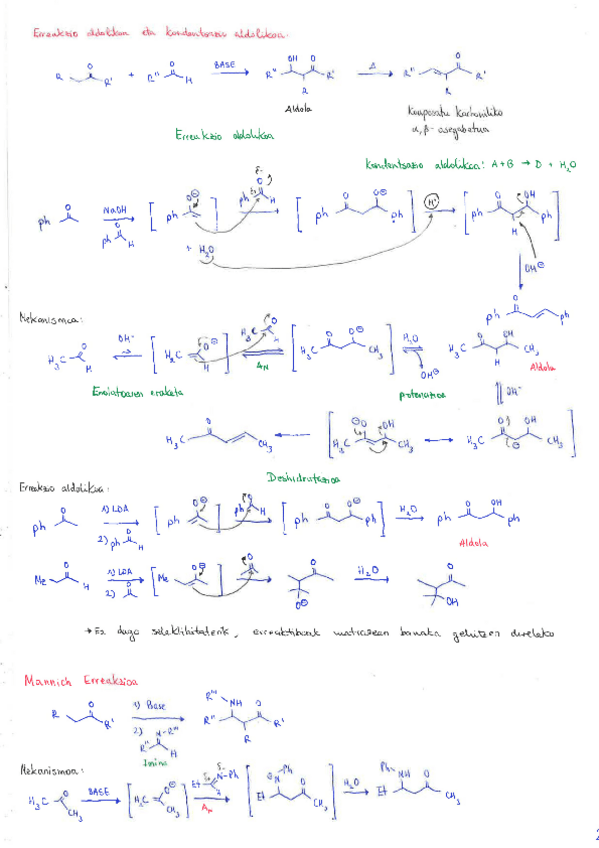 Erreakzio aldolikoa eta kondentsazio aldolikoa:
R R' + R'' H BASE R'' OH O R R' Δ R'' O R R'
Aldola
Konposatu karboniliko
α,β-asegabetua
Erreakzio aldolikoa
Kondentsazio aldolikoa: A+B → D + H2O
ph O NaOH ph O H [ph O⊖] ph O H [ph O O⊖ ph] H+ [ph O OH H ph]
+ H2O
OH⊖
ph O ph
Mekanismoa:
H3C O H OH- [H3C O⊖ H] H3C O H AN [H3C O O⊖ CH3] H2O OH⊖ H3C O OH H CH3
Aldola
Enolatoaren eraketa
protonazioa
OH-
H3C O CH3 [⊖O OH H3C CH3 ↔ O OH H3C ⊖ CH3]
Deshidratazioa
Erreakzio aldolikoa:
ph O 1) LDA 2) ph O H [ph O⊖] ph O H [ph O O⊖ ph] H2O ph O OH ph
Aldola
Me O H 1) LDA 2) O [Me O⊖] O O⊖ O H2O O OH
→ Ez dago selektibitaterik, erreaktiboak matrazean banaka gehitzen direlako
Mannich Erreakzioa
R O R' 1) Base 2) N-R''' R'' H R''' NH O R'' R R'
Imina
Mekanismoa:
H3C O CH3 BASE [H3C O⊖ CH3] Et N-Ph AN [⊖N Ph O Et CH3] H2O Ph NH O Et CH3